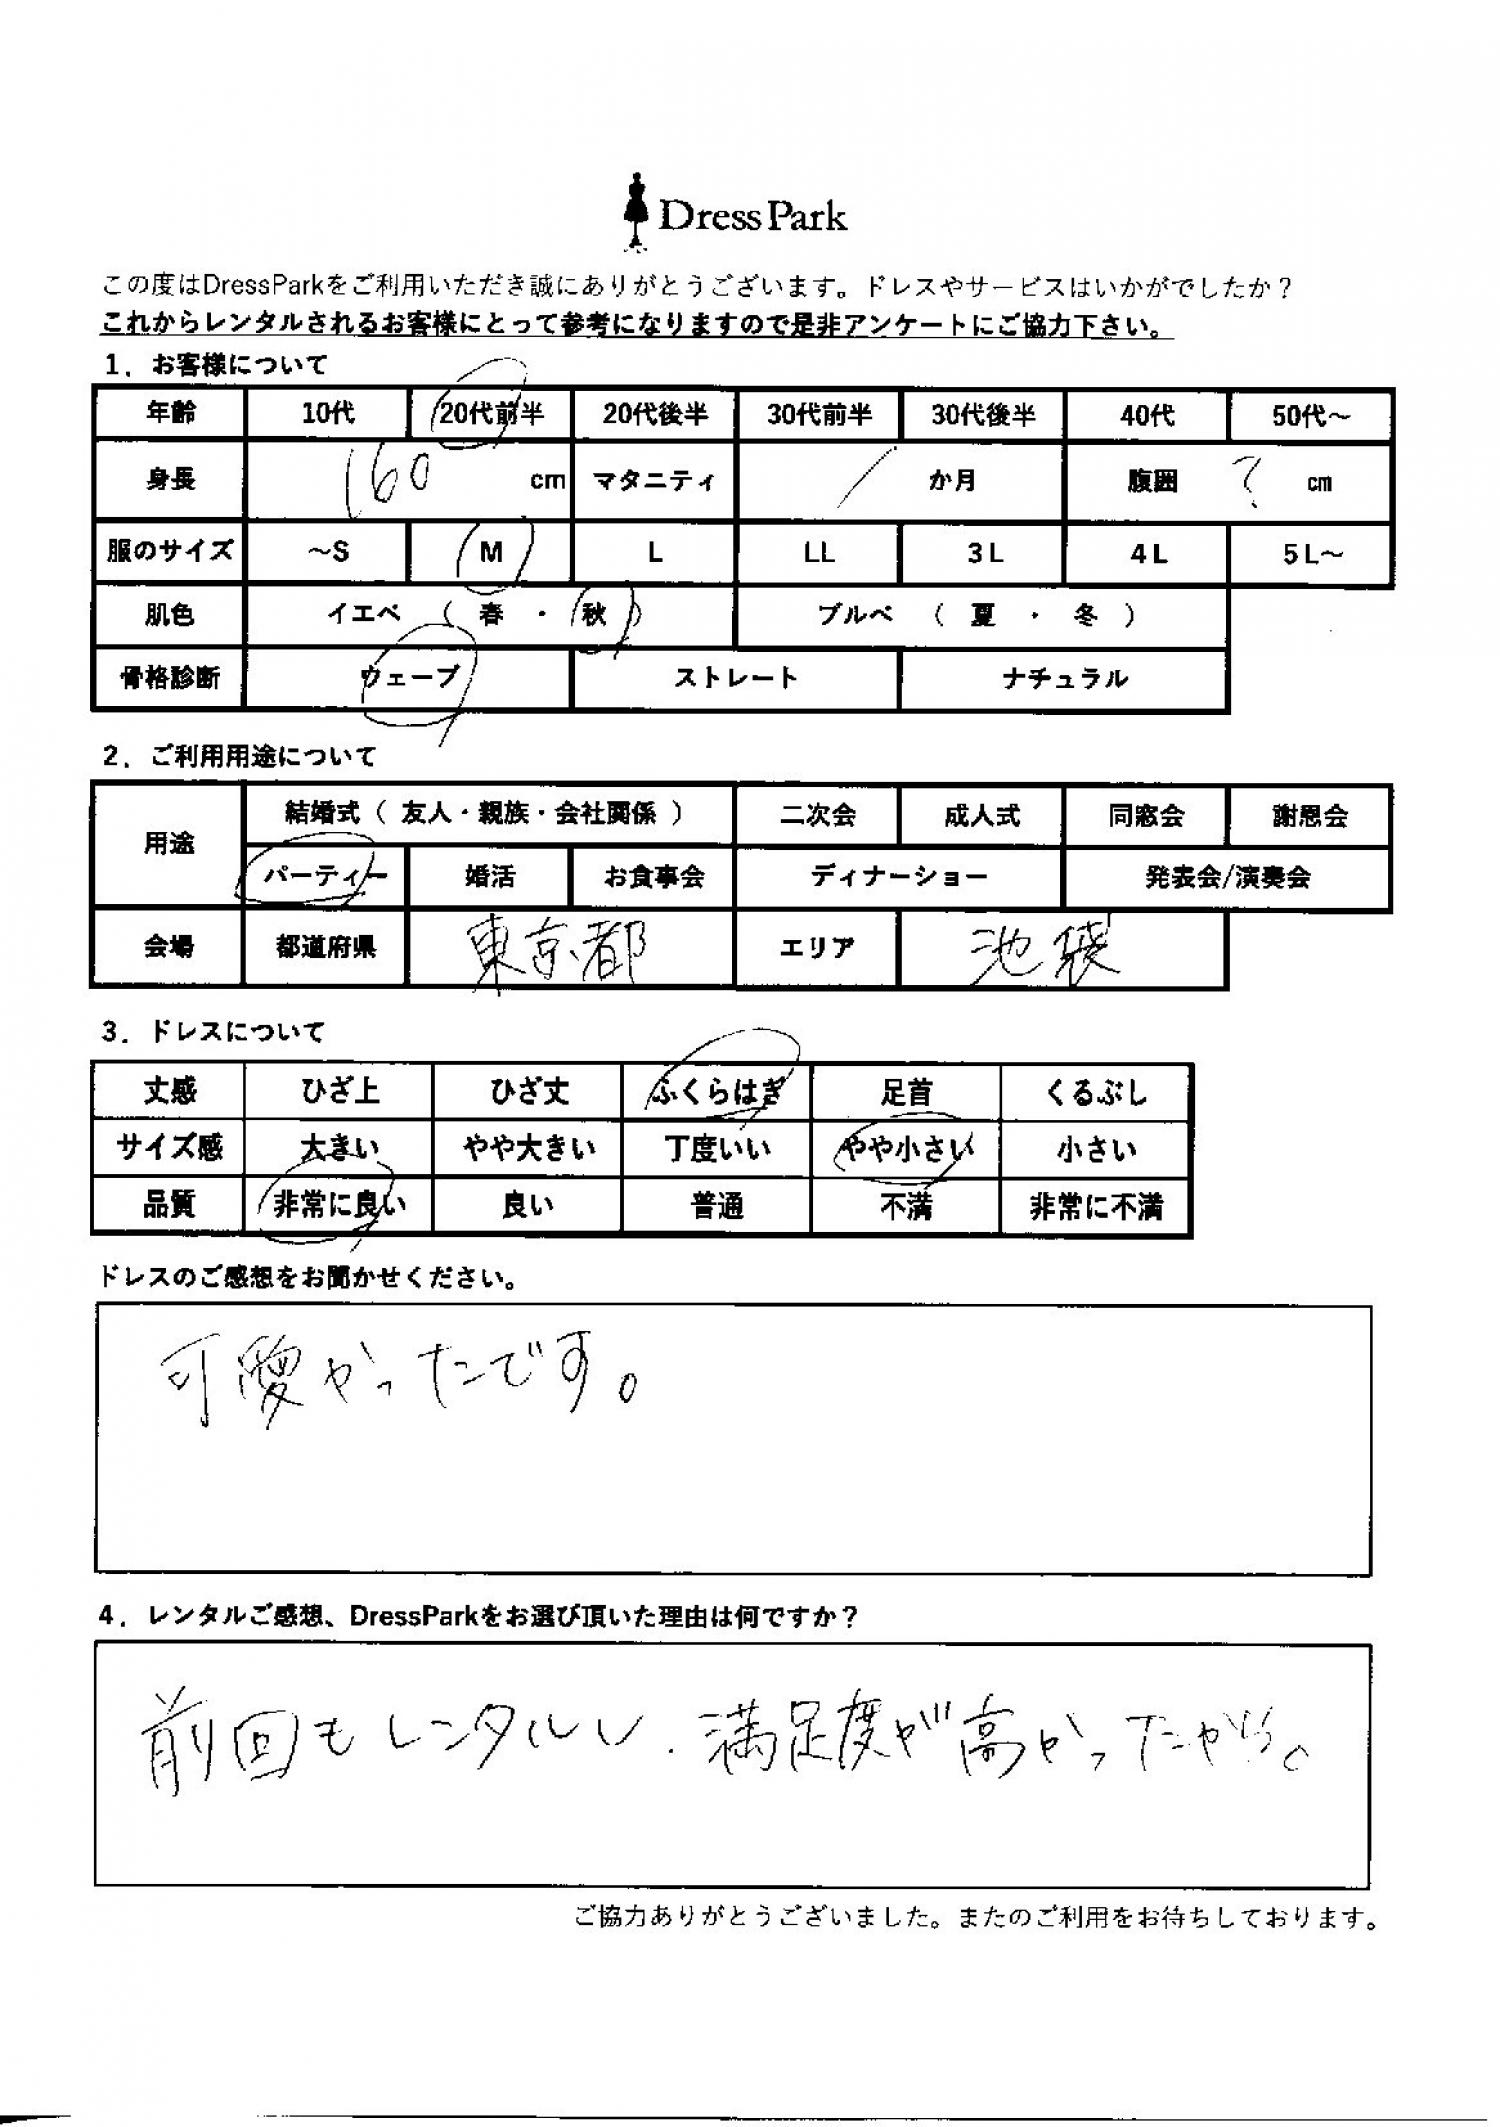 Dress Park
この度はDressParkをご利用いただき誠にありがとうございます。ドレスやサービスはいかがでしたか？
これからレンタルされるお客様にとって参考になりますので是非アンケートにご協力下さい。
1．お客様について
年齢 10代 20代前半 20代後半 30代前半 30代後半 40代 50代～
身長 160 cm マタニティ / か月 腹囲 ? cm
服のサイズ ～S M L LL 3L 4L 5L～
肌色 イエベ （ 春 ・ 秋 ） ブルベ （ 夏 ・ 冬 ）
骨格診断 ウェーブ ストレート ナチュラル
2．ご利用用途について
用途 結婚式（ 友人・親族・会社関係 ） 二次会 成人式 同窓会 謝恩会
パーティー 婚活 お食事会 ディナーショー 発表会/演奏会
会場 都道府県 東京都 エリア 池袋
3．ドレスについて
丈感 ひざ上 ひざ丈 ふくらはぎ 足首 くるぶし
サイズ感 大きい やや大きい 丁度いい やや小さい 小さい
品質 非常に良い 良い 普通 不満 非常に不満
ドレスのご感想をお聞かせください。
可愛かったです。
4．レンタルご感想、DressParkをお選び頂いた理由は何ですか？
前回もレンタルし、満足度が高かったから。
ご協力ありがとうございました。またのご利用をお待ちしております。